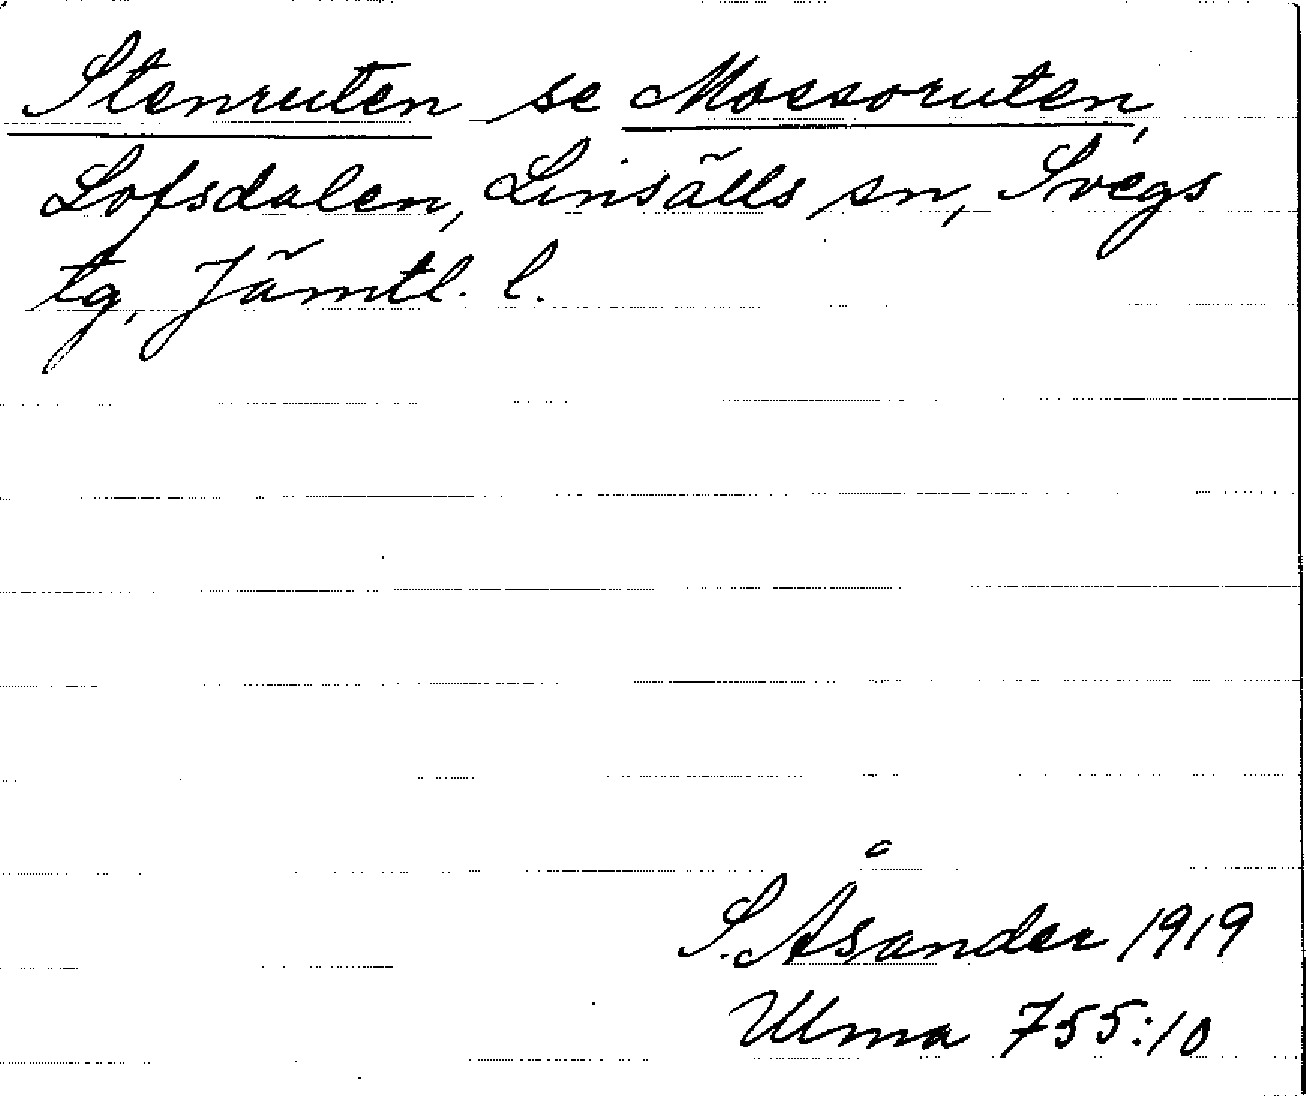 Stenruten se Moesoruten,
Lofsdalen, Linsälls sn, Svegs
tg, Jämtl. l.
S. Åsander 1919
Ulma 755:10